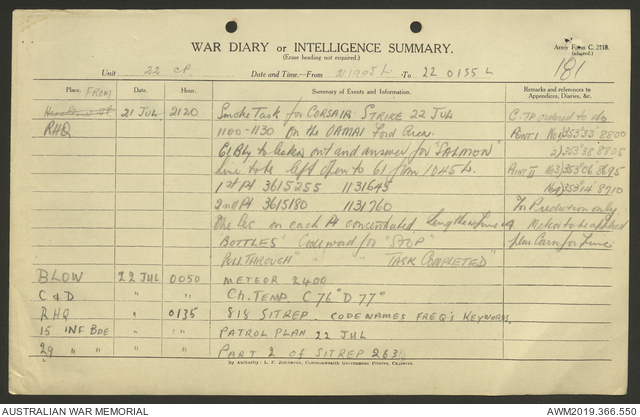 WAR DIARY or INTELLIGENCE SUMMARY.
(Erase heading not required.)
Army Form C. 2118.
(adapted.)
181
Unit 22 CP. Date and Time—From 211905L To 220135L
Place. FROM Date. Hour. Summary of Events and Information. Remarks and references to Appendices, Diaries, &c.
RHQ 21 JUL 2120 Smoke Task for CORSAIR STRIKE 22 JUL
1100-1130 On the DAMAI Ford Area.
61 Bty to listen out and answer for "SALMON"
Line to be left open to 61 from 1045 L.
1st Pt 3615255 1131645
2nd Pt 3615180 1131760
One Sec on each Pt concentrated.
BOTTLES" Codeword for "STOP"
PULLTHROUGH" " " TASK COMPLETED"
C.TP ordered to do
POINT I No1 353°35' 8800
2) 353°38' 8805
POINT II No3) 353°06' 8695
No4 353°14' 8710
For Prediction only
Meteor to be applied
plus Corrn for
BLOW 22 JUL 0050 METEOR 2400
C & D " " Ch. TEMP C 76° D 77°
RHQ " 0135 818 SITREP. CODENAMES FREQ'S KEYWORDS
15 INF BDE " " PATROL PLAN 22 JUL
29 " " " " PART 2 OF SITREP 263
By Authority: L. F. Johnston, Commonwealth Government Printer, Canberra.
AUSTRALIAN WAR MEMORIAL
AWM2019.366.550